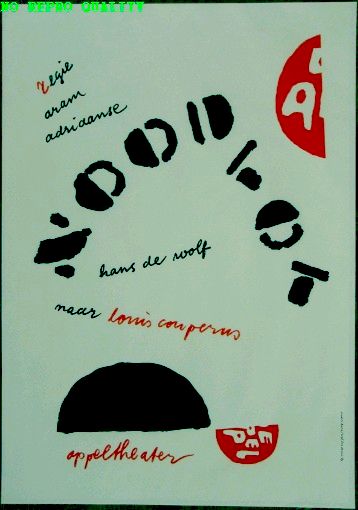 NO REPRO QUALITY
regie
aram
adriaanse
NOODLOT
hans de wolf
naar louis couperus
appeltheater